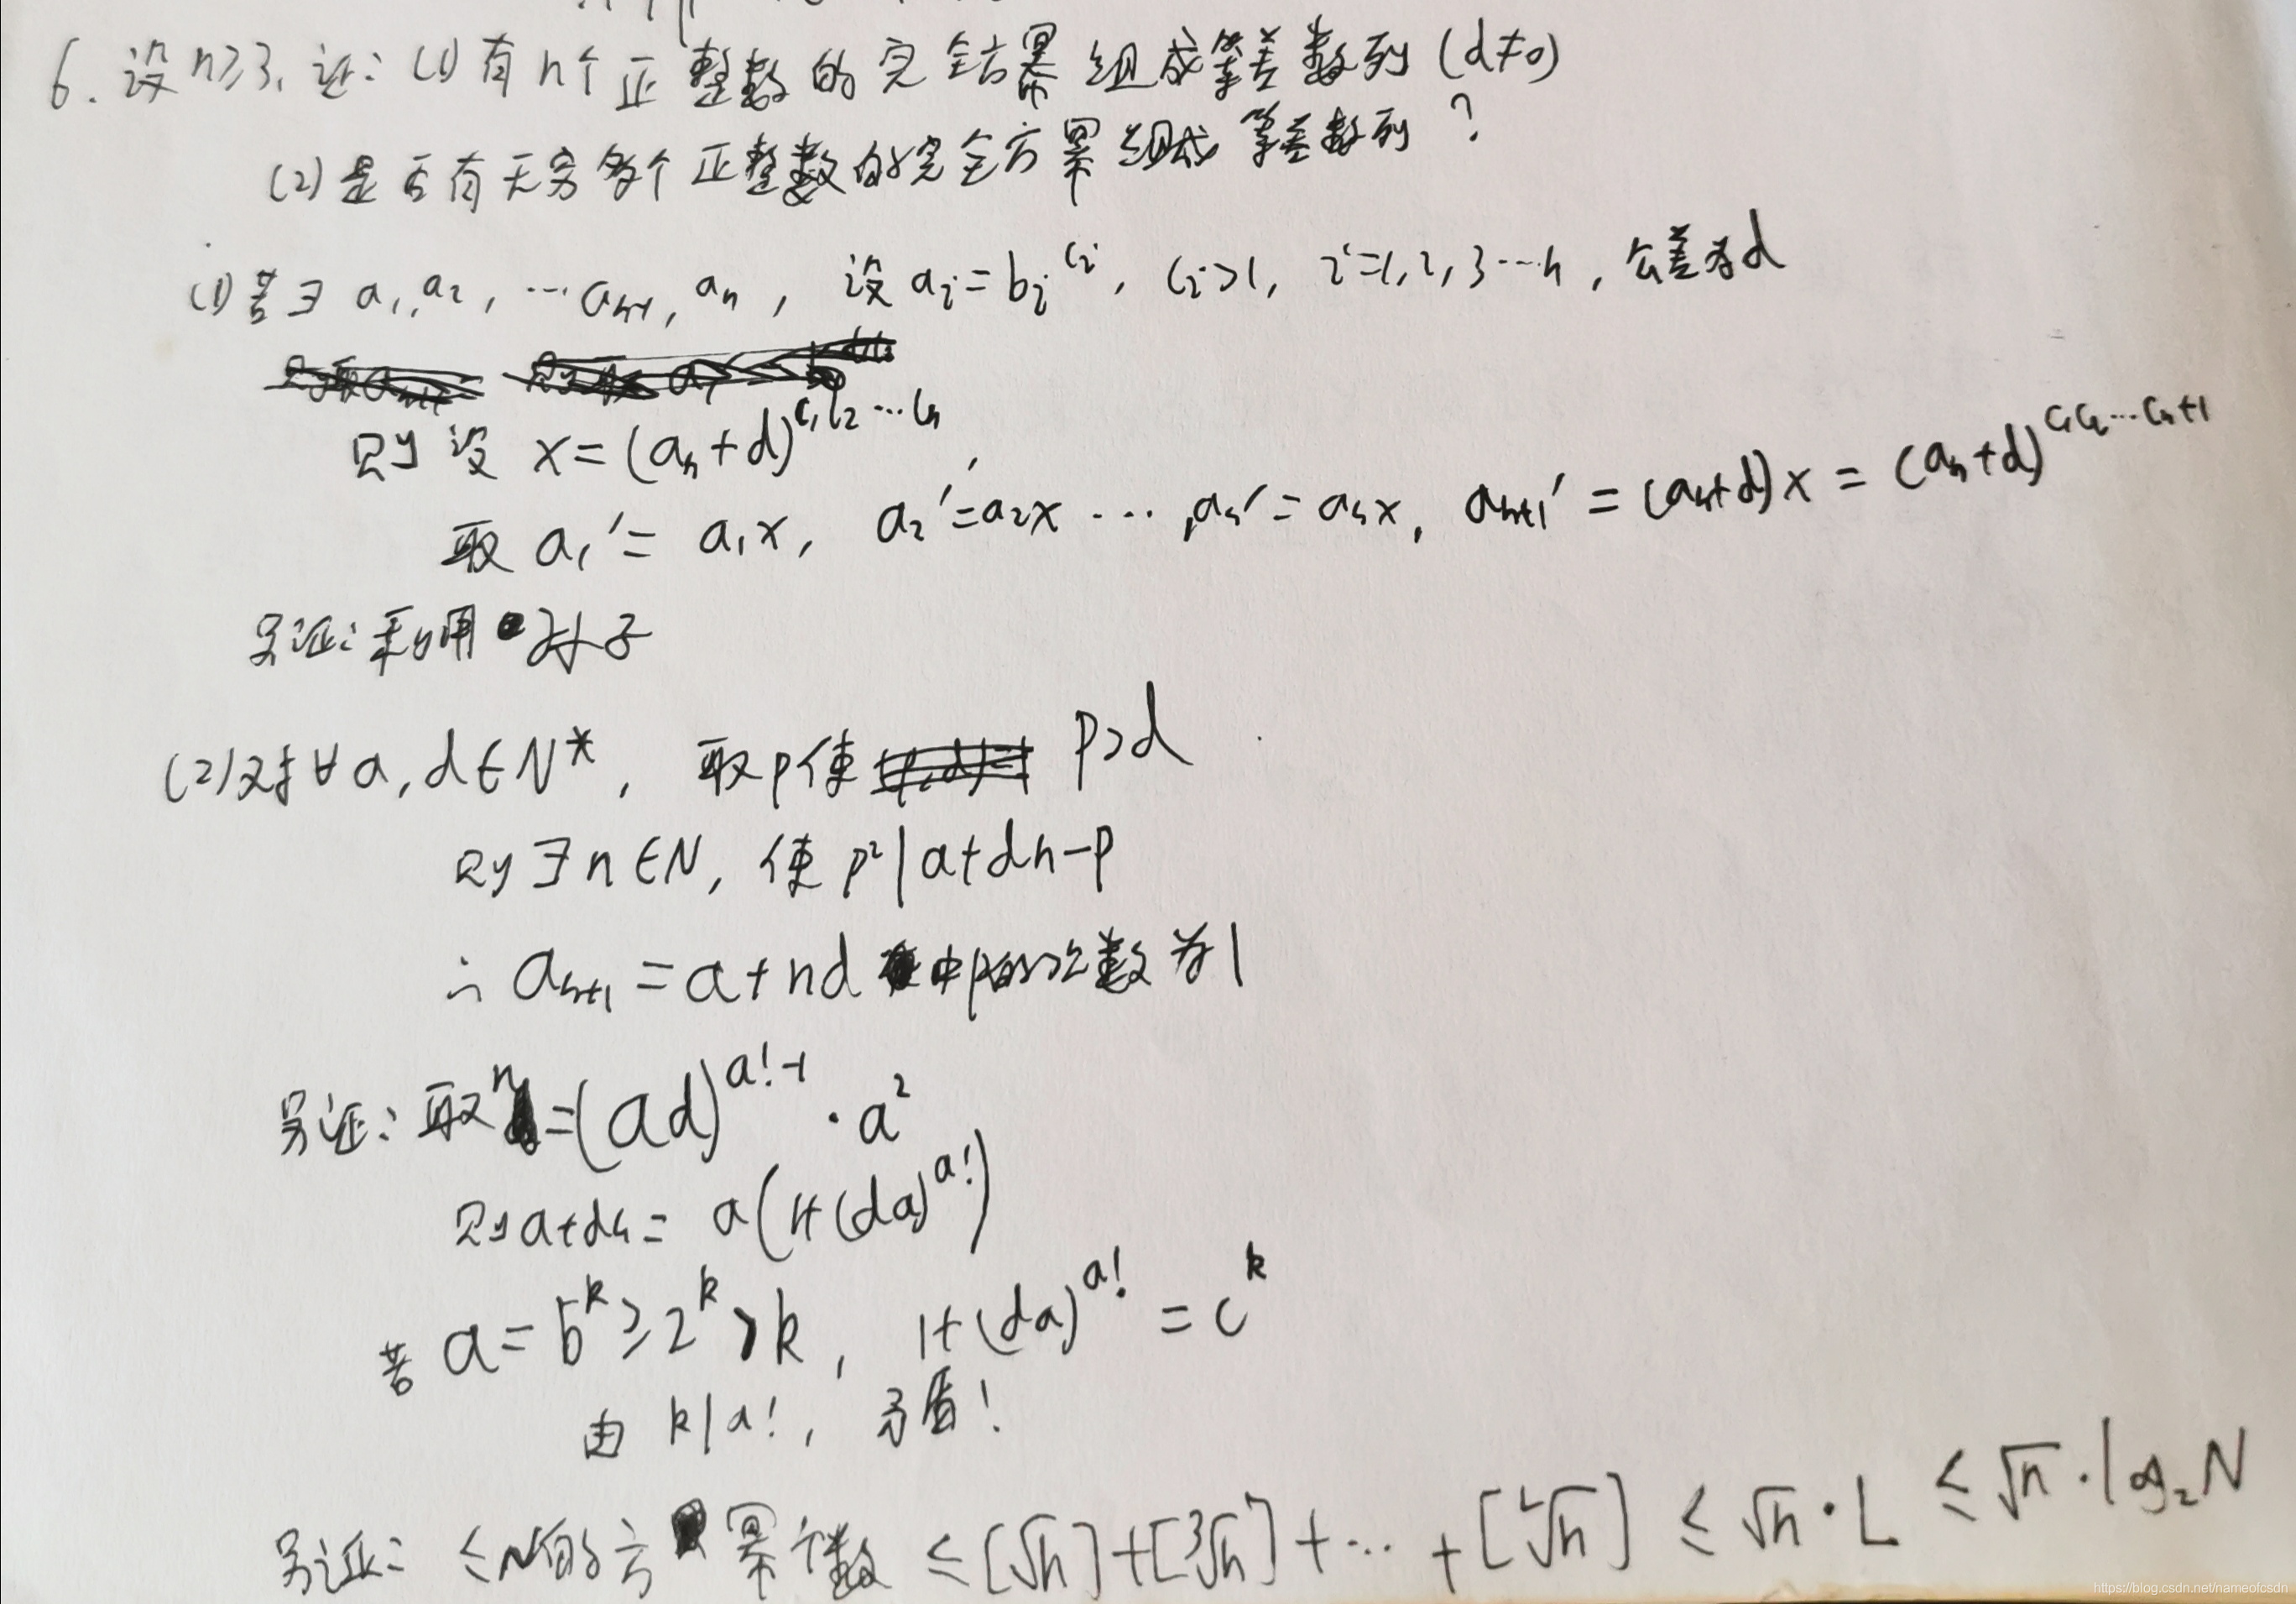 6. 设n≥3, 证: (1) 有n个正整数的完全方幂组成等差数列 (d≠0)
(2) 是否有无穷多个正整数的完全方幂组成等差数列?
(1) 若∃ a₁, a₂, ⋯ aₙ₋₁, aₙ, 设 aᵢ = bᵢ^{cᵢ}, cᵢ>1, i=1,2,3⋯n, 公差为d
则设 x = (aₙ+d)^{c₁c₂⋯cₙ},
取 a₁' = a₁x, a₂' = a₂x ⋯, aₙ' = aₙx, aₙ₊₁' = (aₙ+d)x = (aₙ+d)^{c₁c₂⋯cₙ+1}
另证: 利用孙子
(2) 对∀a, d∈N*, 取p使 p>d
则∃n∈N, 使 p²|a+dn-p
∴ aₙ₊₁ = a+nd 中p的次数为1
另证: 取n=(ad)^{a!-1}·a²
则a+dn = a(1+(da)^{a!})
若 a = b^k ≥ 2^k > k, 1+(da)^{a!} = c^k
由 k|a!, 矛盾!
另证: ≤N的方幂个数 ≤ [√n]+[³√n]+⋯+[ᴸ√n] ≤ √n·L ≤ √n·log₂N
https://blog.csdn.net/nameofcsdn